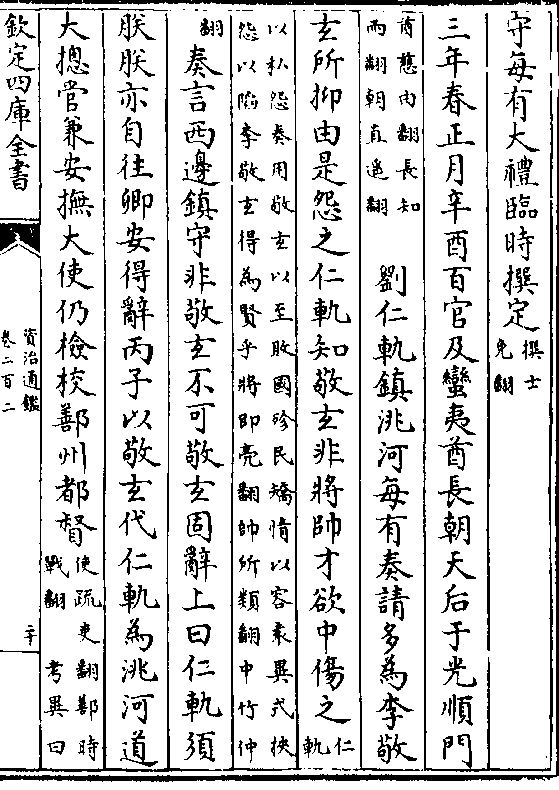 守每有大禮臨時撰定撰士免翻
三年春正月辛酉百官及蠻夷酋長朝天后于光順門
酋慈由翻長知兩翻朝直遥翻　劉仁軌鎮洮河每有奏請多為李敬
玄所抑由是怨之仁軌知敬玄非將帥才欲中傷之仁軌
以私怨奏用敬玄以至敗國殄民矯情以容袁異式挾怨以陷李敬玄得為賢乎將即亮翻帥所類翻中竹仲
翻　奏言西邊鎮守非敬玄不可敬玄固辭上曰仁軌須
朕朕亦自往卿安得辭丙子以敬玄代仁軌為洮河道
大摠管兼安撫大使仍檢校鄯州都督使疏吏翻鄯時戰翻　考異曰
欽定四庫全書
資治通鑑
卷二百二
二十